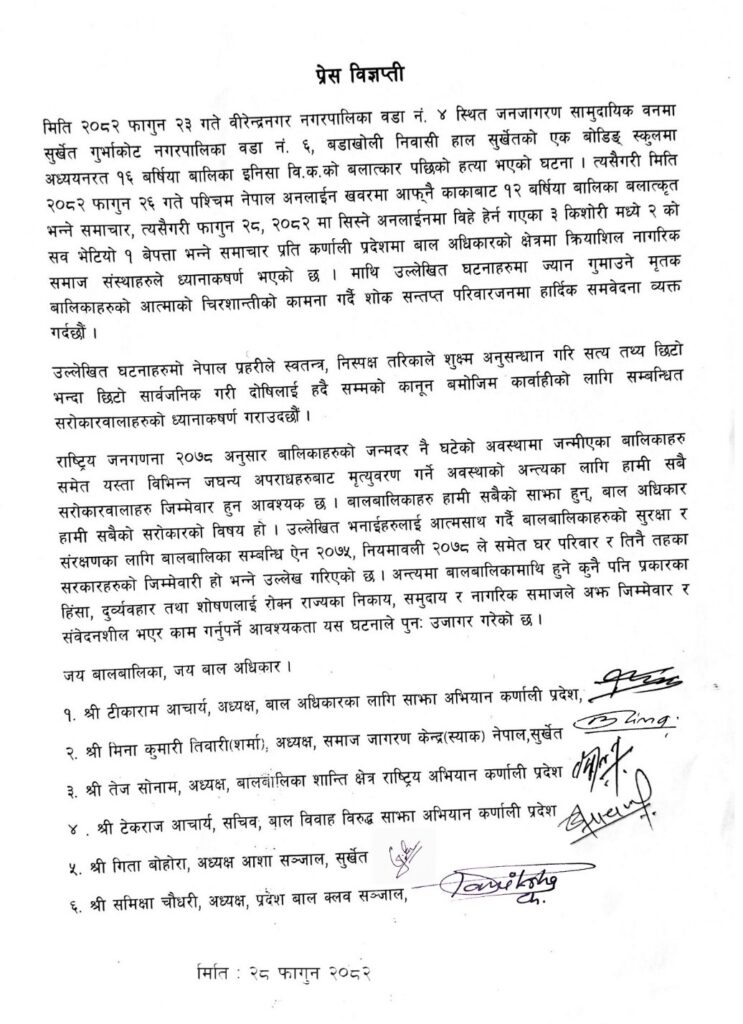 प्रेस विज्ञप्ती
मिति २०८२ फागुन २३ गते वीरेन्द्रनगर नगरपालिका वडा नं. ४ स्थित जनजागरण सामुदायिक वनमा
सुर्खेत गुर्भाकोट नगरपालिका वडा नं. ६, बडाखोली निवासी हाल सुर्खेतको एक बोडिङ्ग स्कुलमा
अध्ययनरत १६ बर्षिया बालिका इनिसा वि.क.को बलात्कार पछिको हत्या भएको घटना । त्यसैगरी मिति
२०८२ फागुन २६ गते पश्चिम नेपाल अनलाईन खवरमा आफ्नै काकाबाट १२ बर्षिया बालिका बलात्कृत
भन्ने समाचार, त्यसैगरी फागुन २८, २०८२ मा सिस्ने अनलाईनमा विहे हेर्न गएका ३ किशोरी मध्ये २ को
सव भेटियो १ बेपत्ता भन्ने समाचार प्रति कर्णाली प्रदेशमा बाल अधिकारको क्षेत्रमा क्रियाशिल नागरिक
समाज संस्थाहरुले ध्यानाकषर्ण भएको छ । माथि उल्लेखित घटनाहरुमा ज्यान गुमाउने मृतक
बालिकाहरुको आत्माको चिरशान्तीको कामना गर्दै शोक सन्तप्त परिवारजनमा हार्दिक समवेदना व्यक्त
गर्दछौं ।
उल्लेखित घटनाहरुमो नेपाल प्रहरीले स्वतन्त्र, निस्पक्ष तरिकाले शुक्ष्म अनुसन्धान गरि सत्य तथ्य छिटो
भन्दा छिटो सार्वजनिक गरी दोषिलाई हदै सम्मको कानून बमोजिम कार्वाहीको लागि सम्बन्धित
सरोकारवालाहरुको ध्यानाकषर्ण गराउदछौं ।
राष्ट्रिय जनगणना २०७८ अनुसार बालिकाहरुको जन्मदर नै घटेको अवस्थामा जन्मीएका बालिकाहरु
समेत यस्ता विभिन्न जघन्य अपराधहरुबाट मृत्युवरण गर्ने अवस्थाको अन्त्यका लागि हामी सबै
सरोकारवालाहरु जिम्मेवार हुन आवश्यक छ । बालबालिकाहरु हामी सबैको साझा हुन्, बाल अधिकार
हामी सबैको सरोकारको विषय हो । उल्लेखित भनाईहरुलाई आत्मसाथ गर्दै बालबालिकाहरुको सुरक्षा र
संरक्षणका लागि बालबालिका सम्बन्धि ऐन २०७५, नियमावली २०७८ ले समेत घर परिवार र तिनै तहका
सरकारहरुको जिम्मेवारी हो भन्ने उल्लेख गरिएको छ । अन्त्यमा बालबालिकामाथि हुने कुनै पनि प्रकारका
हिंसा, दुर्व्यवहार तथा शोषणलाई रोक्न राज्यका निकाय, समुदाय र नागरिक समाजले अझ जिम्मेवार र
संवेदनशील भएर काम गर्नुपर्ने आवश्यकता यस घटनाले पुनः उजागर गरेको छ ।
जय बालबालिका, जय बाल अधिकार ।
१. श्री टीकाराम आचार्य, अध्यक्ष, बाल अधिकारका लागि साझा अभियान कर्णाली प्रदेश,
२. श्री मिना कुमारी तिवारी(शर्मा), अध्यक्ष, समाज जागरण केन्द्र(स्याक) नेपाल,सुर्खेत
३. श्री तेज सोनाम, अध्यक्ष, बालबालिका शान्ति क्षेत्र राष्ट्रिय अभियान कर्णाली प्रदेश
४ . श्री टेकराज आचार्य, सचिव, बाल विवाह विरुद्ध साझा अभियान कर्णाली प्रदेश
५. श्री गिता बोहोरा, अध्यक्ष आशा सञ्जाल, सुर्खेत
६. श्री समिक्षा चौधरी, अध्यक्ष, प्रदेश बाल क्लव सञ्जाल,
मिति : २८ फागुन २०८२